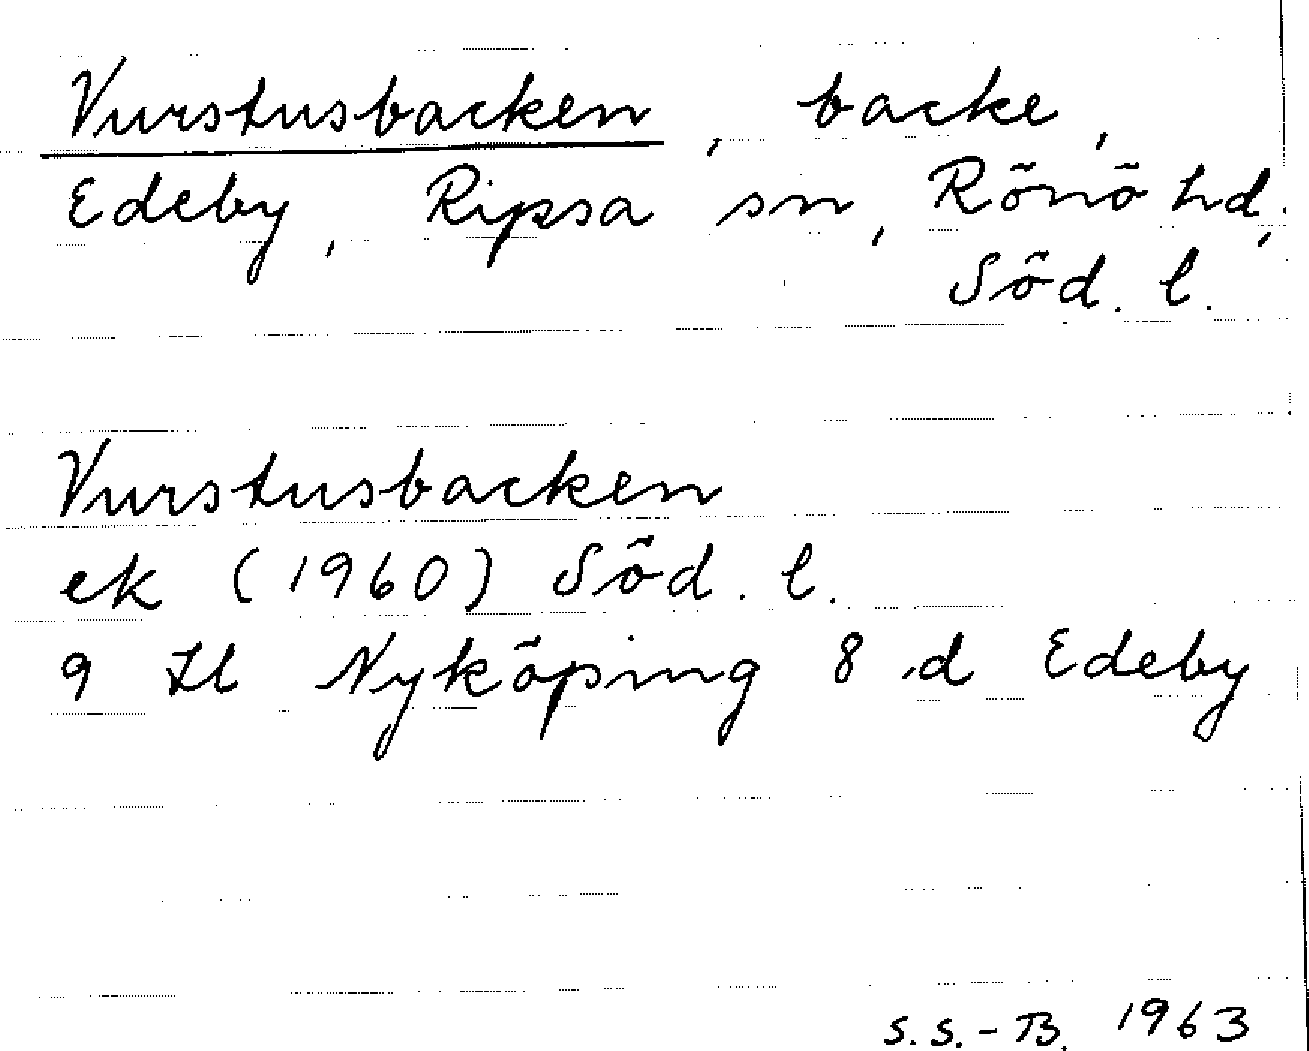 Vurstusbacken, backe,
Edeby, Ripsa sn, Rönö hd,
Söd. l.
Vurstusbacken
ek (1960) Söd. l.
9 Il Nyköping 8 d Edeby
S.S.-B. 1963